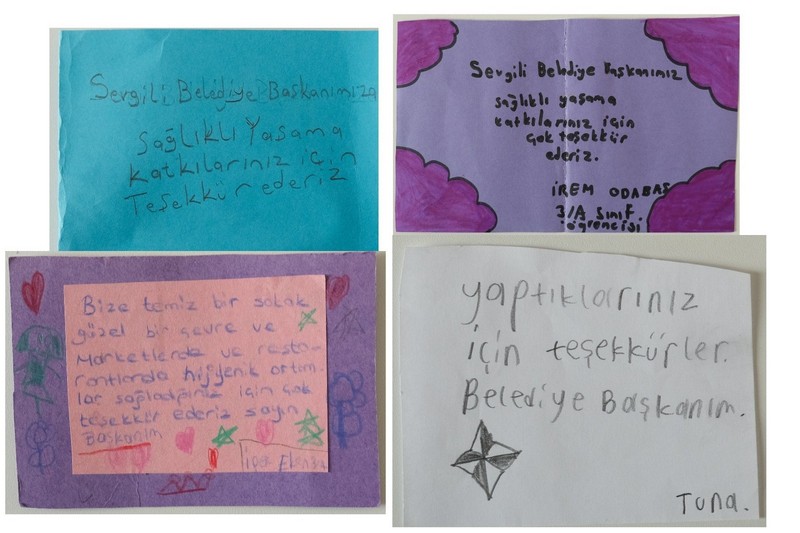 Sevgili Belediye Başkanımıza
Sağlıklı Yaşama
katkılarınız için
Teşekkür ederiz
Sevgili Belediye Başkanımız
sağlıklı yaşama
katkılarınız için
çok teşekkür
ederiz.
İREM ODABAŞ
3/A sınıf
öğrencisi
Bize temiz bir sokak
güzel bir çevre ve
Marketlerde ve resto-
rantlarda hijyenik ortam-
lar sağladığınız için çok
teşekkür ederiz sayın
Başkanım
İpek
yaptıklarınız
için teşekkürler.
Belediye Başkanım.
Tuna.